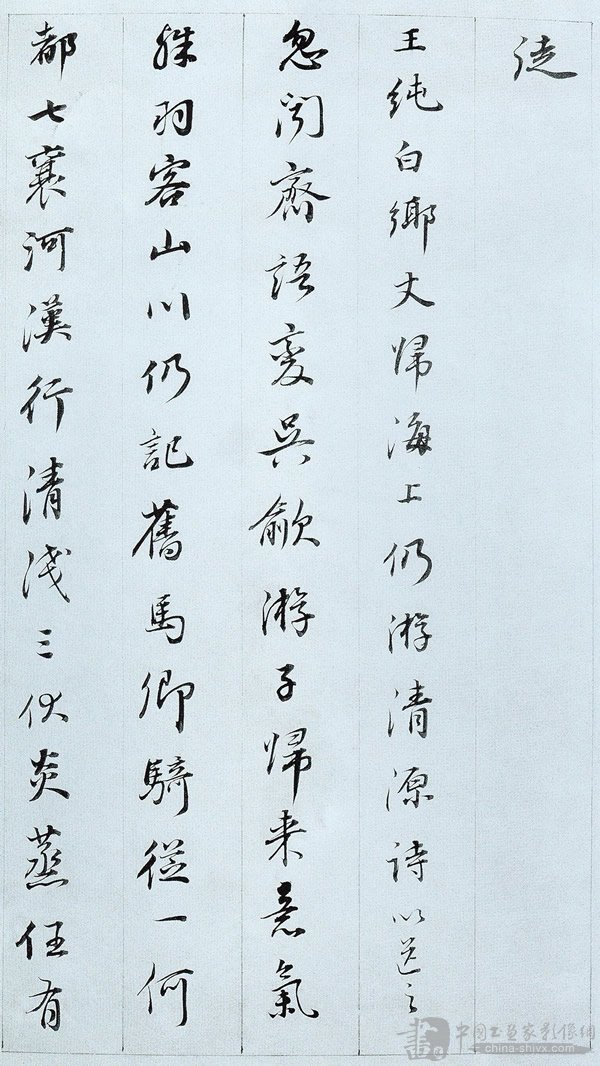 徒
王純白鄉丈歸海上仍游清源詩以送之
忽聞齋語變吳歈游子歸來意氣
殊羽客山川仍記舊馬卿騎從一何
都七襄河漢行清淺三伏炎蒸任有
中国书画家影像網
china-shivx.com